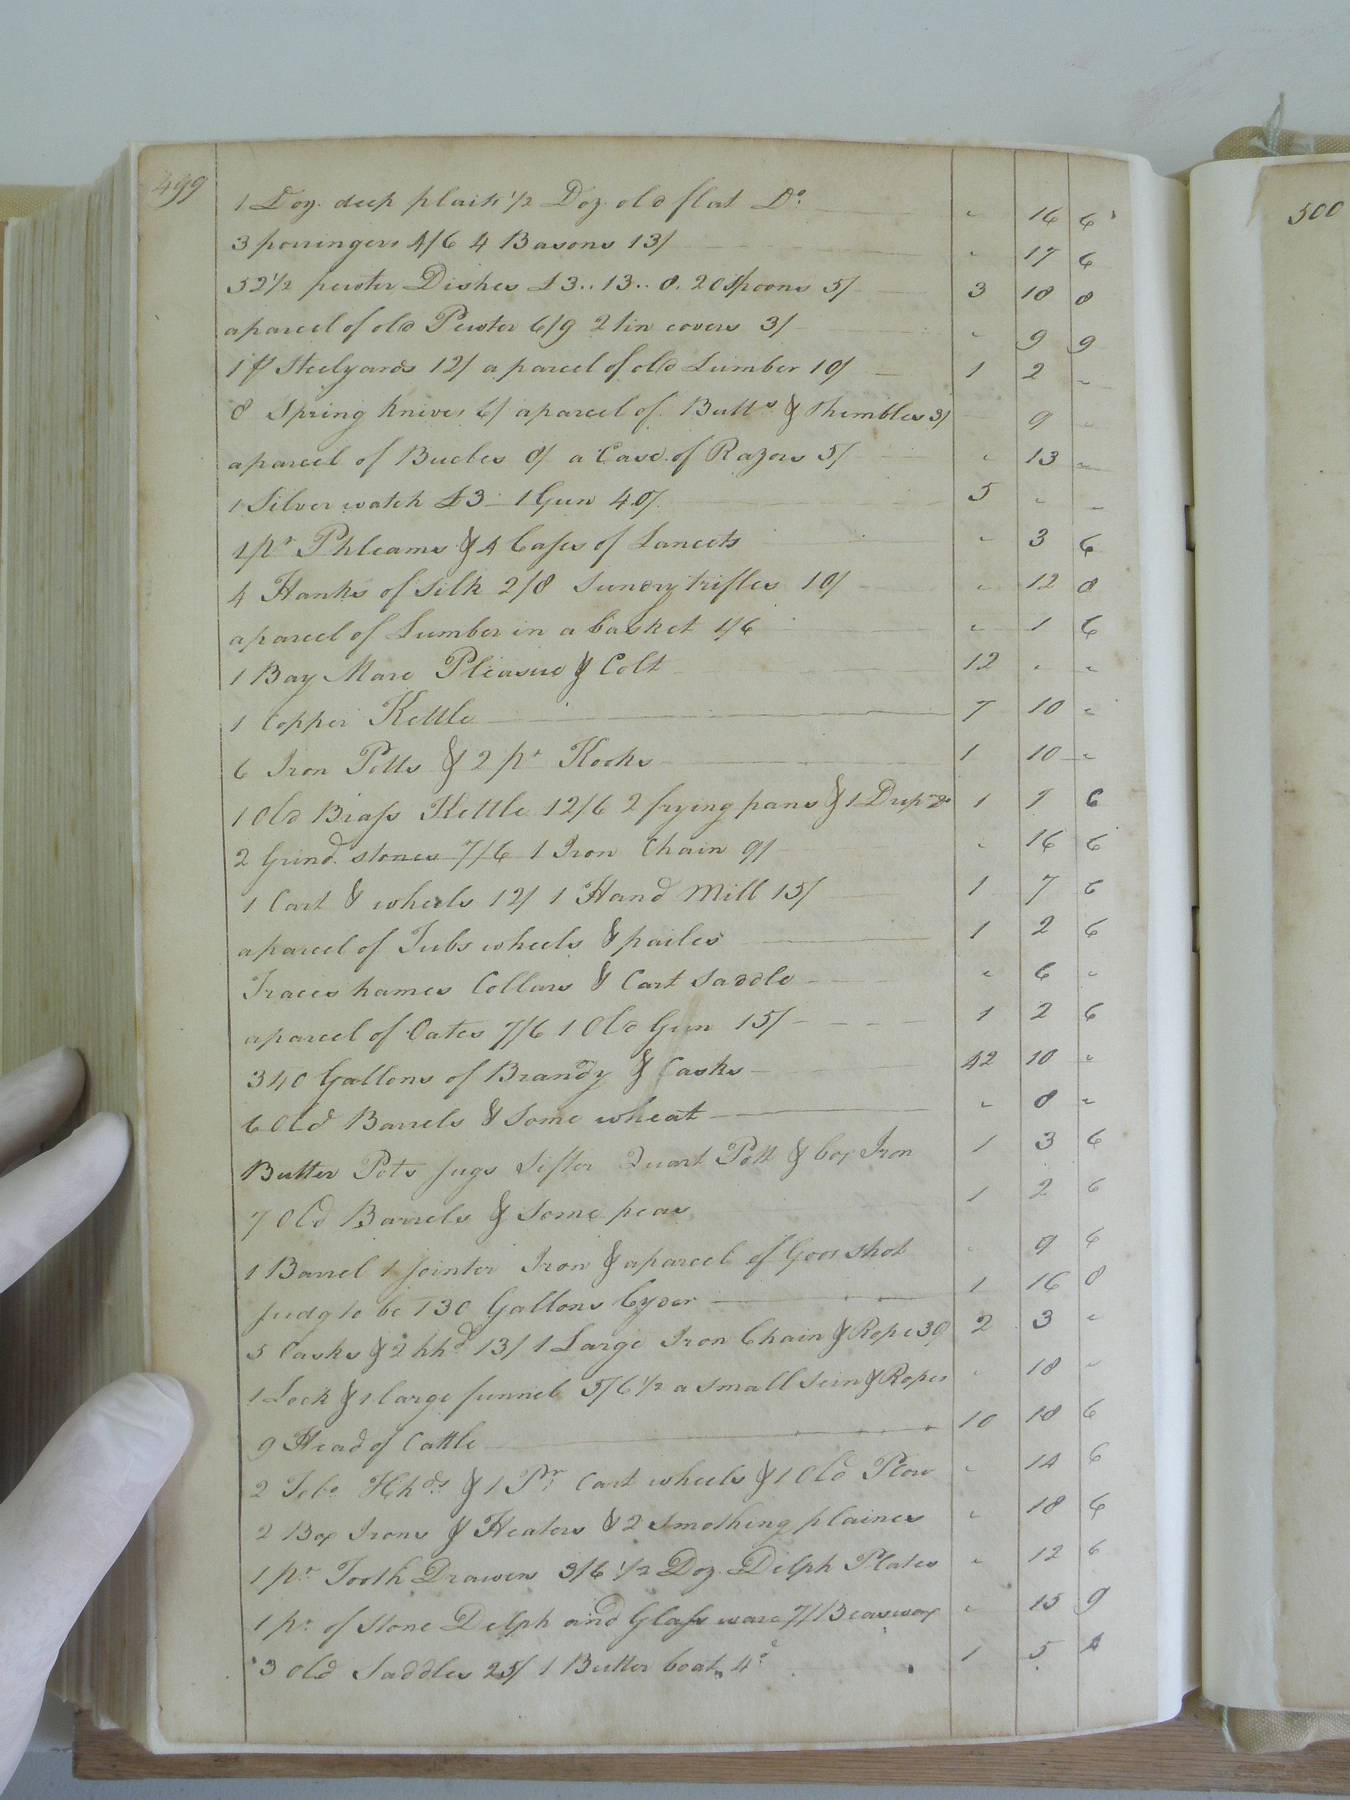 499
500
1 Doz. deep plaits 1/2 Doz old flat Do " 16 6
3 porringers 4/6 4 Basons 13/ " 17 6
52 1/2 pewter Dishes £3..13..8. 20 Spoons 5/ 3 18 8
a parcel of old Pewter 6/9 2 tin covers 3/ " 9 9
1 pr Steelyards 12/ a parcel of old Lumber 10/ 1 2 "
8 Spring Knives 6/ a parcel of Butts & Thimbles 3/ 9 "
a parcel of Bucles 8/ a Case of Razors 5/ " 13 "
1 Silver watch £3 - 1 Gun 40/ 5 " "
1 pr Phleams & 4 Cases of Lancets " 3 6
4 Hanks of silk 2/8 Sundry trifles 10/ " 12 8
a parcel of Lumber in a basket 1/6 " 1 6
1 Bay Mare Pleasure & Colt 12 " "
1 Copper Kettle 7 10 "
6 Iron Potts & 2 pr Hooks 1 10 "
1 Old Brass Kettle 12/6 2 frying pans & 1 Drip Do 1 7 6
2 Grind stones 7/6 1 Iron Chain 9/ " 16 6
1 Cart & wheels 12/ 1 Hand Mill 15/ 1 7 6
a parcel of Tubs wheels & pailes 1 2 6
Traces hames Collars & Cart Saddle " 6 "
a parcel of Oates 7/6 1 Old Gun 15/ 1 2 6
340 Gallons of Brandy & Casks 42 10 "
6 Old Barrels & Some wheat " 8 "
Butter Pots Jugs Sifter Quart Pott & box Iron 1 3 6
7 Old Barrels & Some peas 1 2 6
1 Barrel 1 Jointer Iron & a parcel of Goos shot " 9 6
Judg to be 130 Gallons Cyder 1 16 8
5 Casks & 2 hhd 13/ 1 Large Iron Chain & Rope 30/ 2 3 "
1 Lock & 1 large funnel 5/6 1/2 a small sein & Ropes " 18 "
9 Head of Cattle 10 18 6
2 Tobo Hhds & 1 Pr Cart wheels & 1 Old Plow " 14 6
2 Box Irons & Heaters & 2 Smothing plaines " 18 6
1 pr Tooth Drawers 3/6 1/2 Doz. Delph Plates " 12 6
1 pr of Stone Delph and Glass ware 7/ Beaswax " 15 9
3 Old Saddles 25/ 1 Butter boat 4d 1 5 4